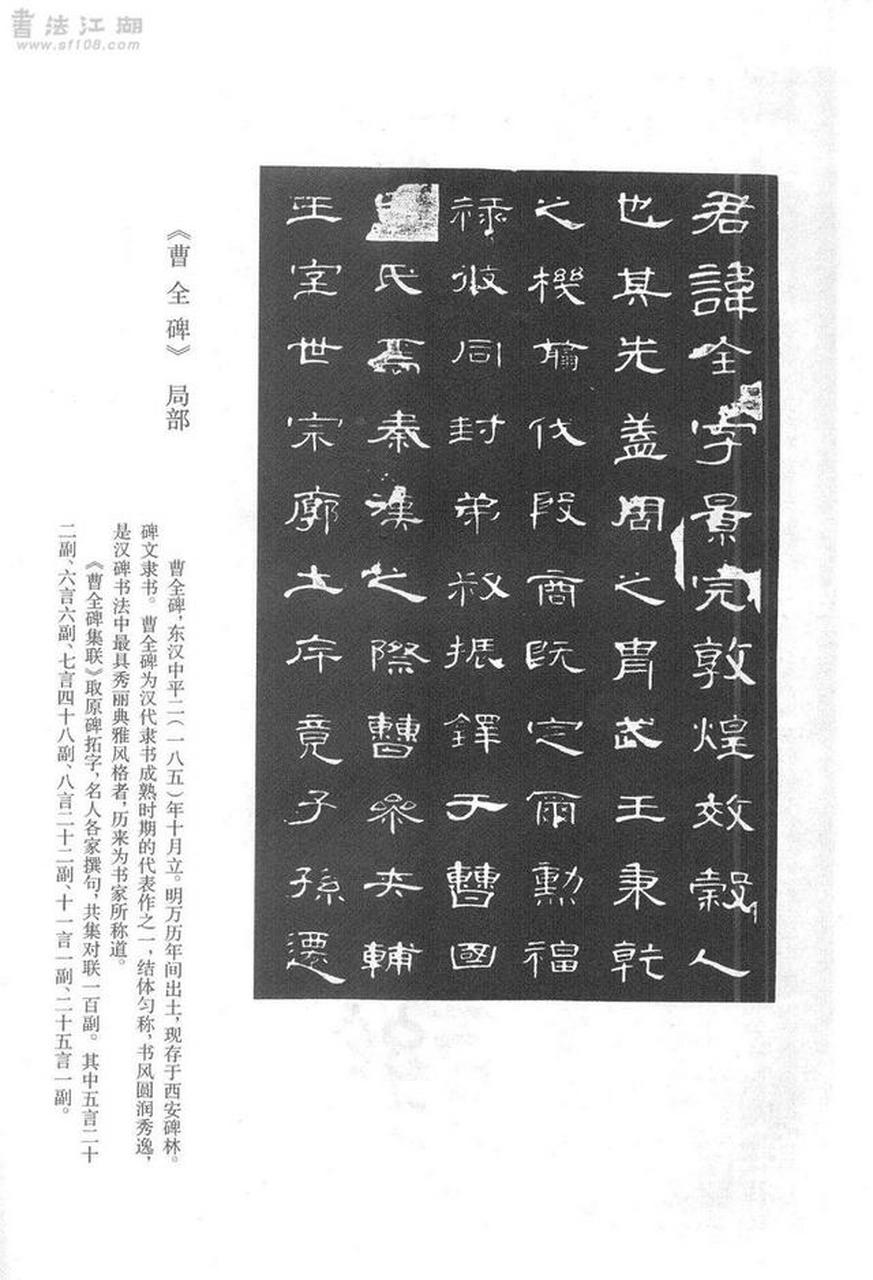 書法江湖
www.sf108.com
君諱全字景完敦煌效穀人
也其先蓋周之胄武王秉乾
之機翦伐殷商既定爾勳福
祿攸同封弟叔振鐸于曹國
氏焉秦漢之際曹參夾輔
王室世宗廓土斥竟子孫遷
《曹全碑》 局部
曹全碑，东汉中平二（一八五）年十月立。明万历年间出土，现存于西安碑林。
碑文隶书。曹全碑为汉代隶书成熟时期的代表作之一，结体匀称，书风圆润秀逸，
是汉碑书法中最具秀丽典雅风格者，历来为书家所称道。
《曹全碑集联》取原碑拓字，名人各家撰句，共集对联一百副。其中五言二十
二副、六言六副、七言四十八副、八言二十二副、十一言一副、二十五言一副。